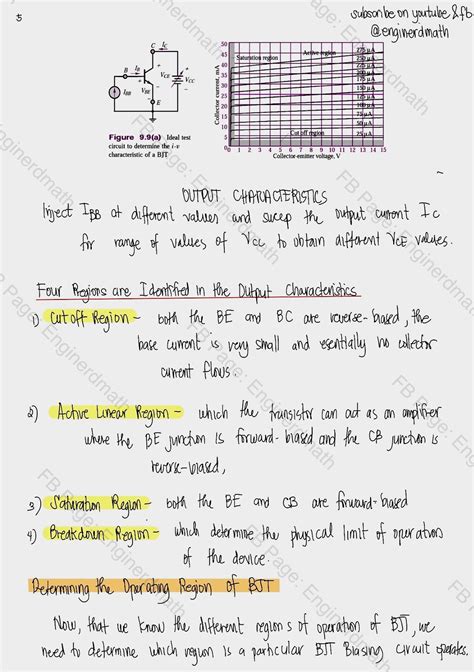 5
subscribe on youtube & fb
@enginerdmath
C
I_C
B
I_B
+
V_CE
V_CC
V_BE
I_BB
E
Figure 9.9(a) Ideal test
circuit to determine the i-v
characteristic of a BJT
Collector current, mA
50
45
40
35
30
25
20
15
10
5
0
Saturation region
Active region
Cut off region
275 µA
250 µA
225 µA
200 µA
175 µA
150 µA
125 µA
100 µA
75 µA
50 µA
25 µA
0 1 2 3 4 5 6 7 8 9 10 11 12 13 14 15
Collector-emitter voltage, V
OUTPUT CHARACTERISTICS
Inject I_BB at different values and sweep the output current I_C
for range of values of V_CC to obtain different V_CE values.
Four Regions are Identified in the Output Characteristics
1) Cut off Region - both the BE and BC are reverse-biased, the
base current is very small and esentially no collector
current flows.
2) Active Linear Region - which the transistor can act as an amplifier
where the BE junction is forward-biased and the CB junction is
reverse-biased,
3) Saturation Region - both the BE and CB are forward-biased
4) Breakdown Region - which determine the physical limit of operation
of the device.
Determining the Operating Region of BJT
Now, that we know the different regions of operation of BJT, we
need to determine which region is a particular BJT Biasing circuit operates.
FB Page: Enginerdmath